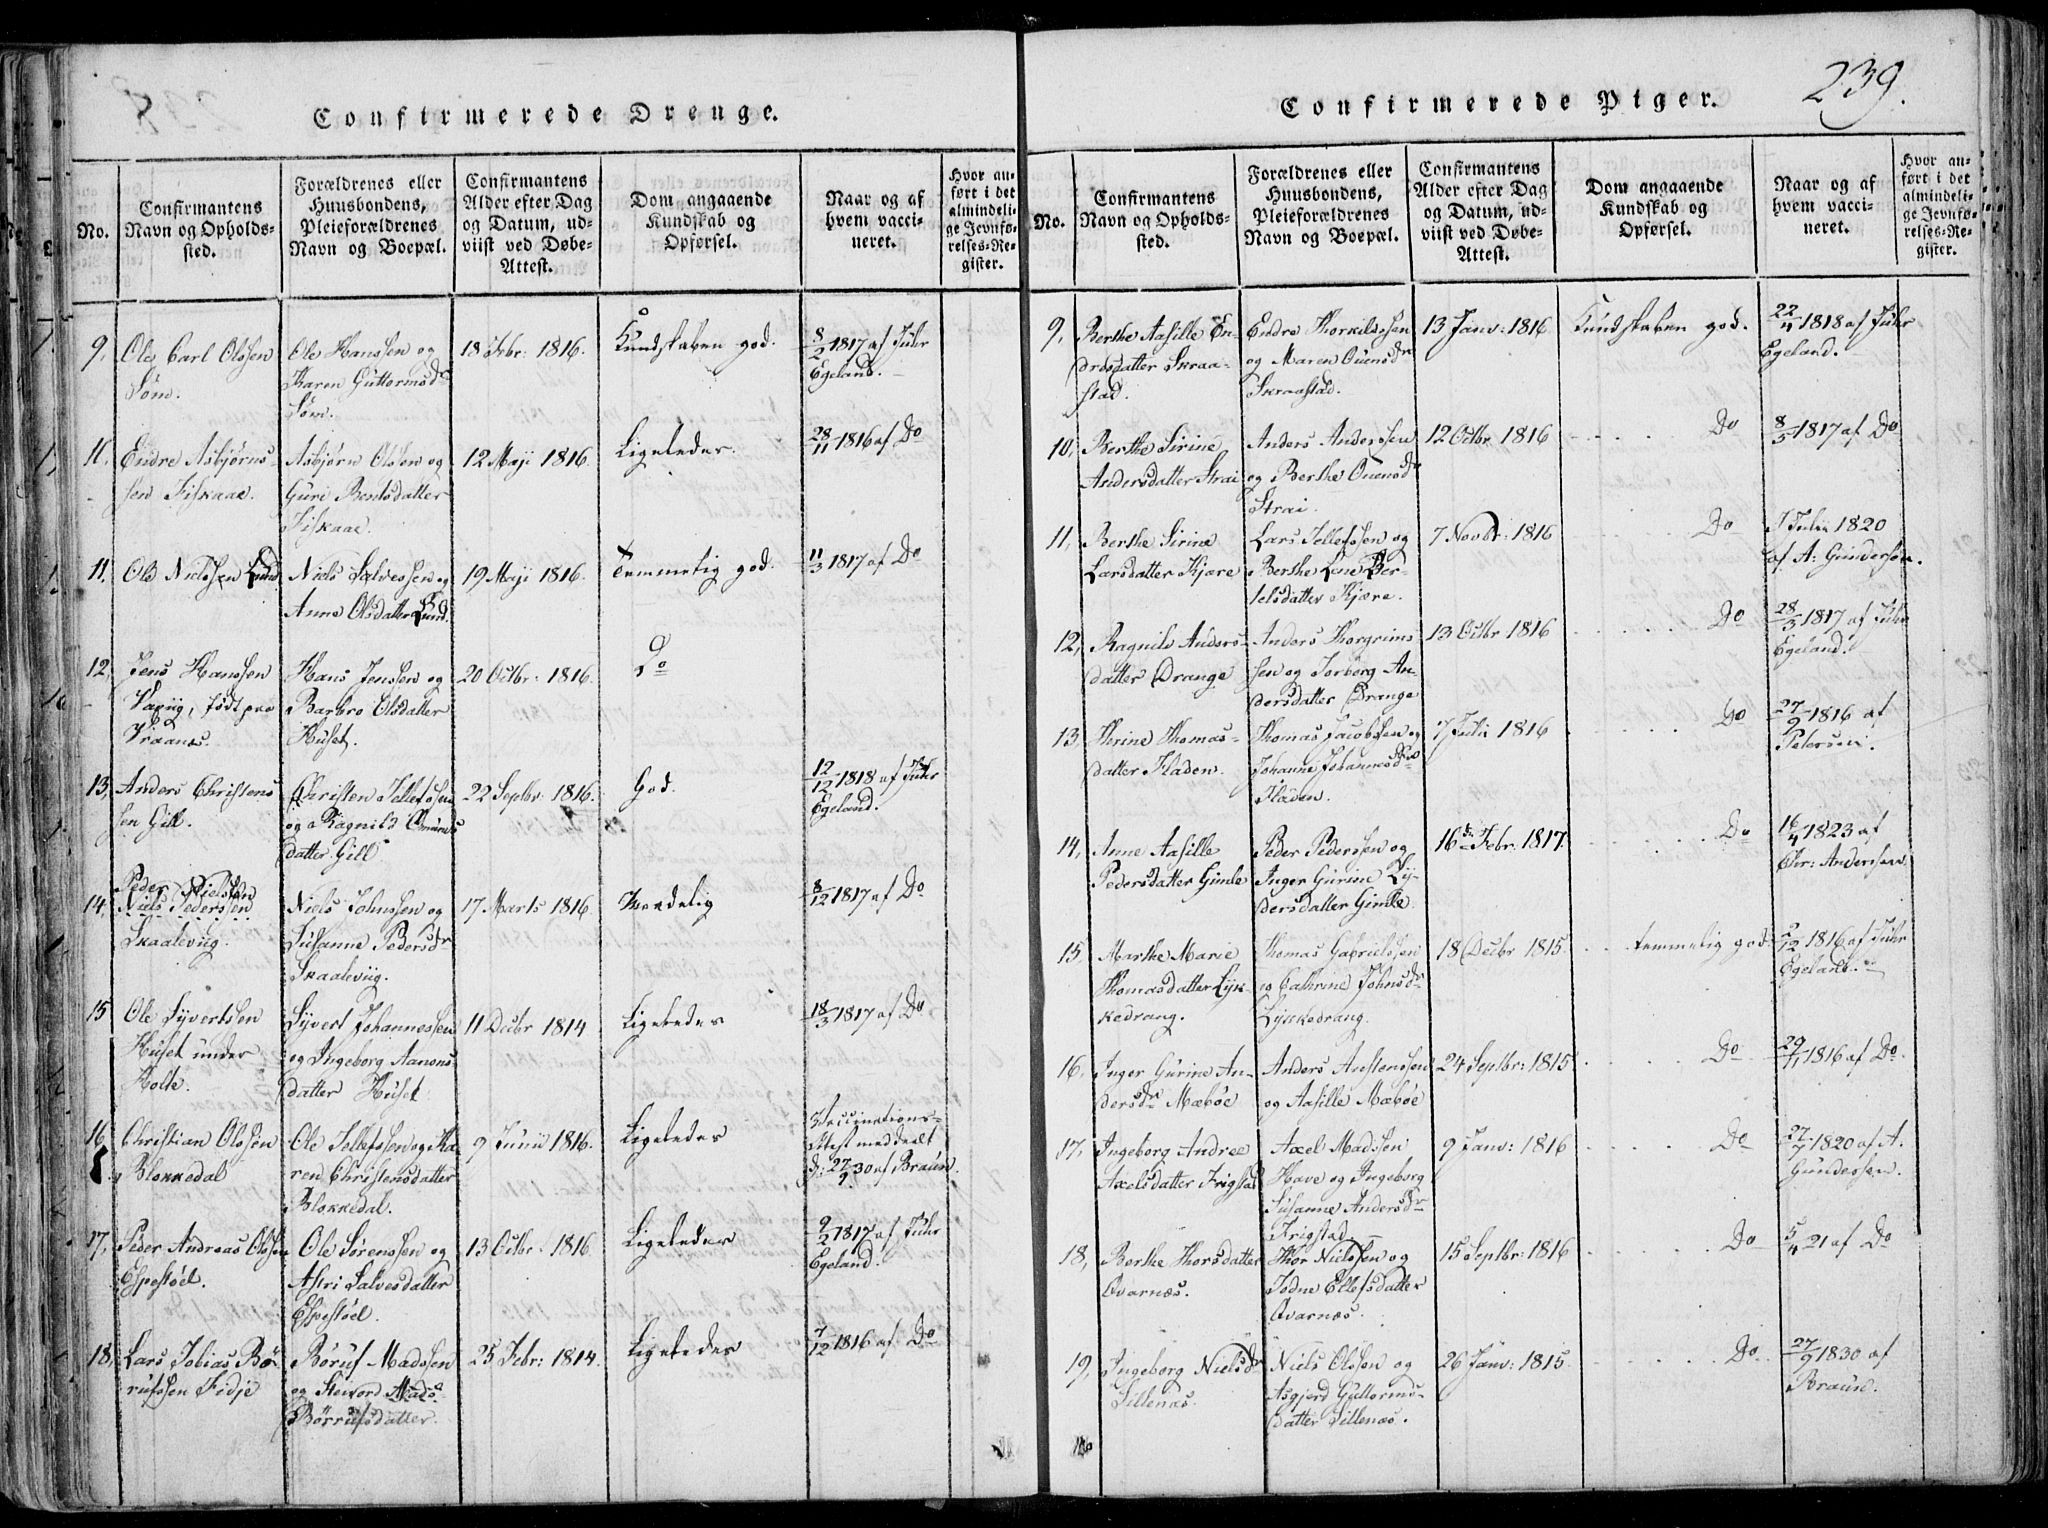 Confirmerede Drenge.
No.
Confirmantens
Navn og Opholds-
sted.
Forældrenes eller
Huusbondens,
Pleieforældrenes
Navn og Boepæl.
Confirmantens
Alder efter Dag
og Datum, ud-
viist ved Døbe-
Attest.
Dom angaaende
Kundskab og
Opførsel.
Naar og af
hvem vacci-
neret.
Hvor an-
ført i det
almindeli-
ge Jevnfø-
relses-Re-
gister.
9, Ole Carl Olssen
Søm.
Ole Hanssen og
Karen Guttormsdr
Søm.
18 Febr: 1816.
Kundskaben god.
8/2 1817 af Juhr
Egeland.
11. Endre Asbjørns-
sen Fiskaae.
Asbjørn Olssen og
Guri Bentsdatter
Fiskaae.
12 Maji 1816.
Ligeledes.
28/11 1816 af Do
11. Ole Nielssen Lund
Niels Salvessen og
Anne Olsdatter Lund.
19 Maji 1816.
Temmelig god.
11/3 1817 af Do
12, Jens Hanssen
født paa
Hans Jenssen og
Barbro Olsdatter
Huset.
20 Octbr: 1816.
Do
13, Anders Christens
sen Gill.
Christen Tellefssen
og Ragnild Omunds
datter Gill
22 Septbr: 1816.
God.
12/12 1818 af Juhr
Egeland.
Peder Nielssen
14, Niels Pederssen
Skaaleviig.
Niels Johnssen og
Susanne Pedersdr
Skaaleviig.
17 Marts 1816
Maadelig
8/12 1817 af Do
15 Ole Syvertsen
Huset under
Holte.
Syvert Johannessen
og Ingeborg Aanons
datter Huset
11 Decbr 1814
Ligeledes
18/3 1817 af Do
16 Christian Olssen
Blokkedal
Ole Tellefssen og Ka
ren Christensdatter
Blokkedal.
9 Junii 1816.
Ligeledes
Vaccinations-
Attest meddeelt
d: 27/9 30 af Braun.
17, Peder Andreas Olssen
Espestøel.
Ole Sørenssen og
Astri Salvesdatter
Espestøel.
13 Octbr. 1816
Ligeledes
9/2 1817 af Juhr
Egeland.
18, Lars Tobias Bø-
rufssen Fidje
Børuf Madssen
og
Børrufsdatter.
25 Febr: 1814.
Ligeledes
7/12 1816 af Do
Confirmerede Piger.
239.
No.
Confirmantens
Navn og Opholds-
sted.
Forældrenes eller
Huusbondens,
Pleieforældrenes
Navn og Boepæl.
Confirmantens
Alder efter Dag
og Datum, ud-
viist ved Døbe-
Attest.
Dom angaaende
Kundskab og
Opførsel.
Naar og af
hvem vacci-
neret.
Hvor an-
ført i det
almindeli-
ge Jevnfø-
relses-Re-
gister.
9, Berthe Aasille En-
dresdatter Skraa-
stad.
Endre Thorkildssen
og Maren Ouensdr
Skraastad.
13 Janv: 1816
Kundskaben god.
22/4 1818 af Juhr
Egeland.
10, Berthe Sirine
Andersdatter Strai
Anders Anderssen
og Berthe Ouensdr
Strai.
12 Octbr 1816
Do
8/5 1817 af Do
11, Berthe Sirine
Larsdatter Kjære
Lars Tellefssen og
Berthe Lene Ber-
telsdatter Kjære.
7 Novbr: 1816
Do
Julii 1820
af A: Gundersen.
12, Ragnild Anders-
datter Drange
Anders Thorgrims
sen og Torborg An-
dersdatter Drange
13 Octbr 1816
Do
28/3 1817 af Juhr
Egeland.
13 Thrine Thomas-
datter Fladen.
Thomas Jacobssen og
Johanne Johannesdr
Fladen.
7 Julii 1816
Do
27/9 1816 af
Petersen.
14, Anne Aasille
Pedersdatter Gimle
Peder Pederssen og
Inger Gurine
dersdatter Gimle
16 d: Febr: 1817.
Do
16/4 1823 af
Chr: Anderssen
15, Marthe Marie
Thomasdatter Lyk-
kedrang.
Thomas Gabrielssen
og Cathrine Johnsdr
Lykkedrang.
18 Decbr 1815.
temmelig god
2/12 1816 af Juhr
Egeland.
16. Inger Gurine An-
dersdr Mæbøe
Anders Anstenssen
og Aasille Mæbøe
24 Septbr: 1815
Do
29/11 1816 af Do.
17, Ingeborg Andrea
Axelsdatter Frigstad
Axel Madssen
Have og Ingeborg
Susanne Andersdr
Frigstad
9 Janv: 1816
Do
27/7 1820 af A.
Gunderssen.
18, Berthe Thorsdatter
Qvarnæs.
Thor Nielssen og
Todne Ellefsdatter
Qvarnæs.
15 Septbr: 1816
Do
5/4 21 af Do
19, Ingeborg Nielsdr
Sillenæs.
Niels Olssen og
Asgjerd Guttorms-
datter Sillenæs.
26 Janv: 1815.
Do.
27/9 1830 af
Braun.